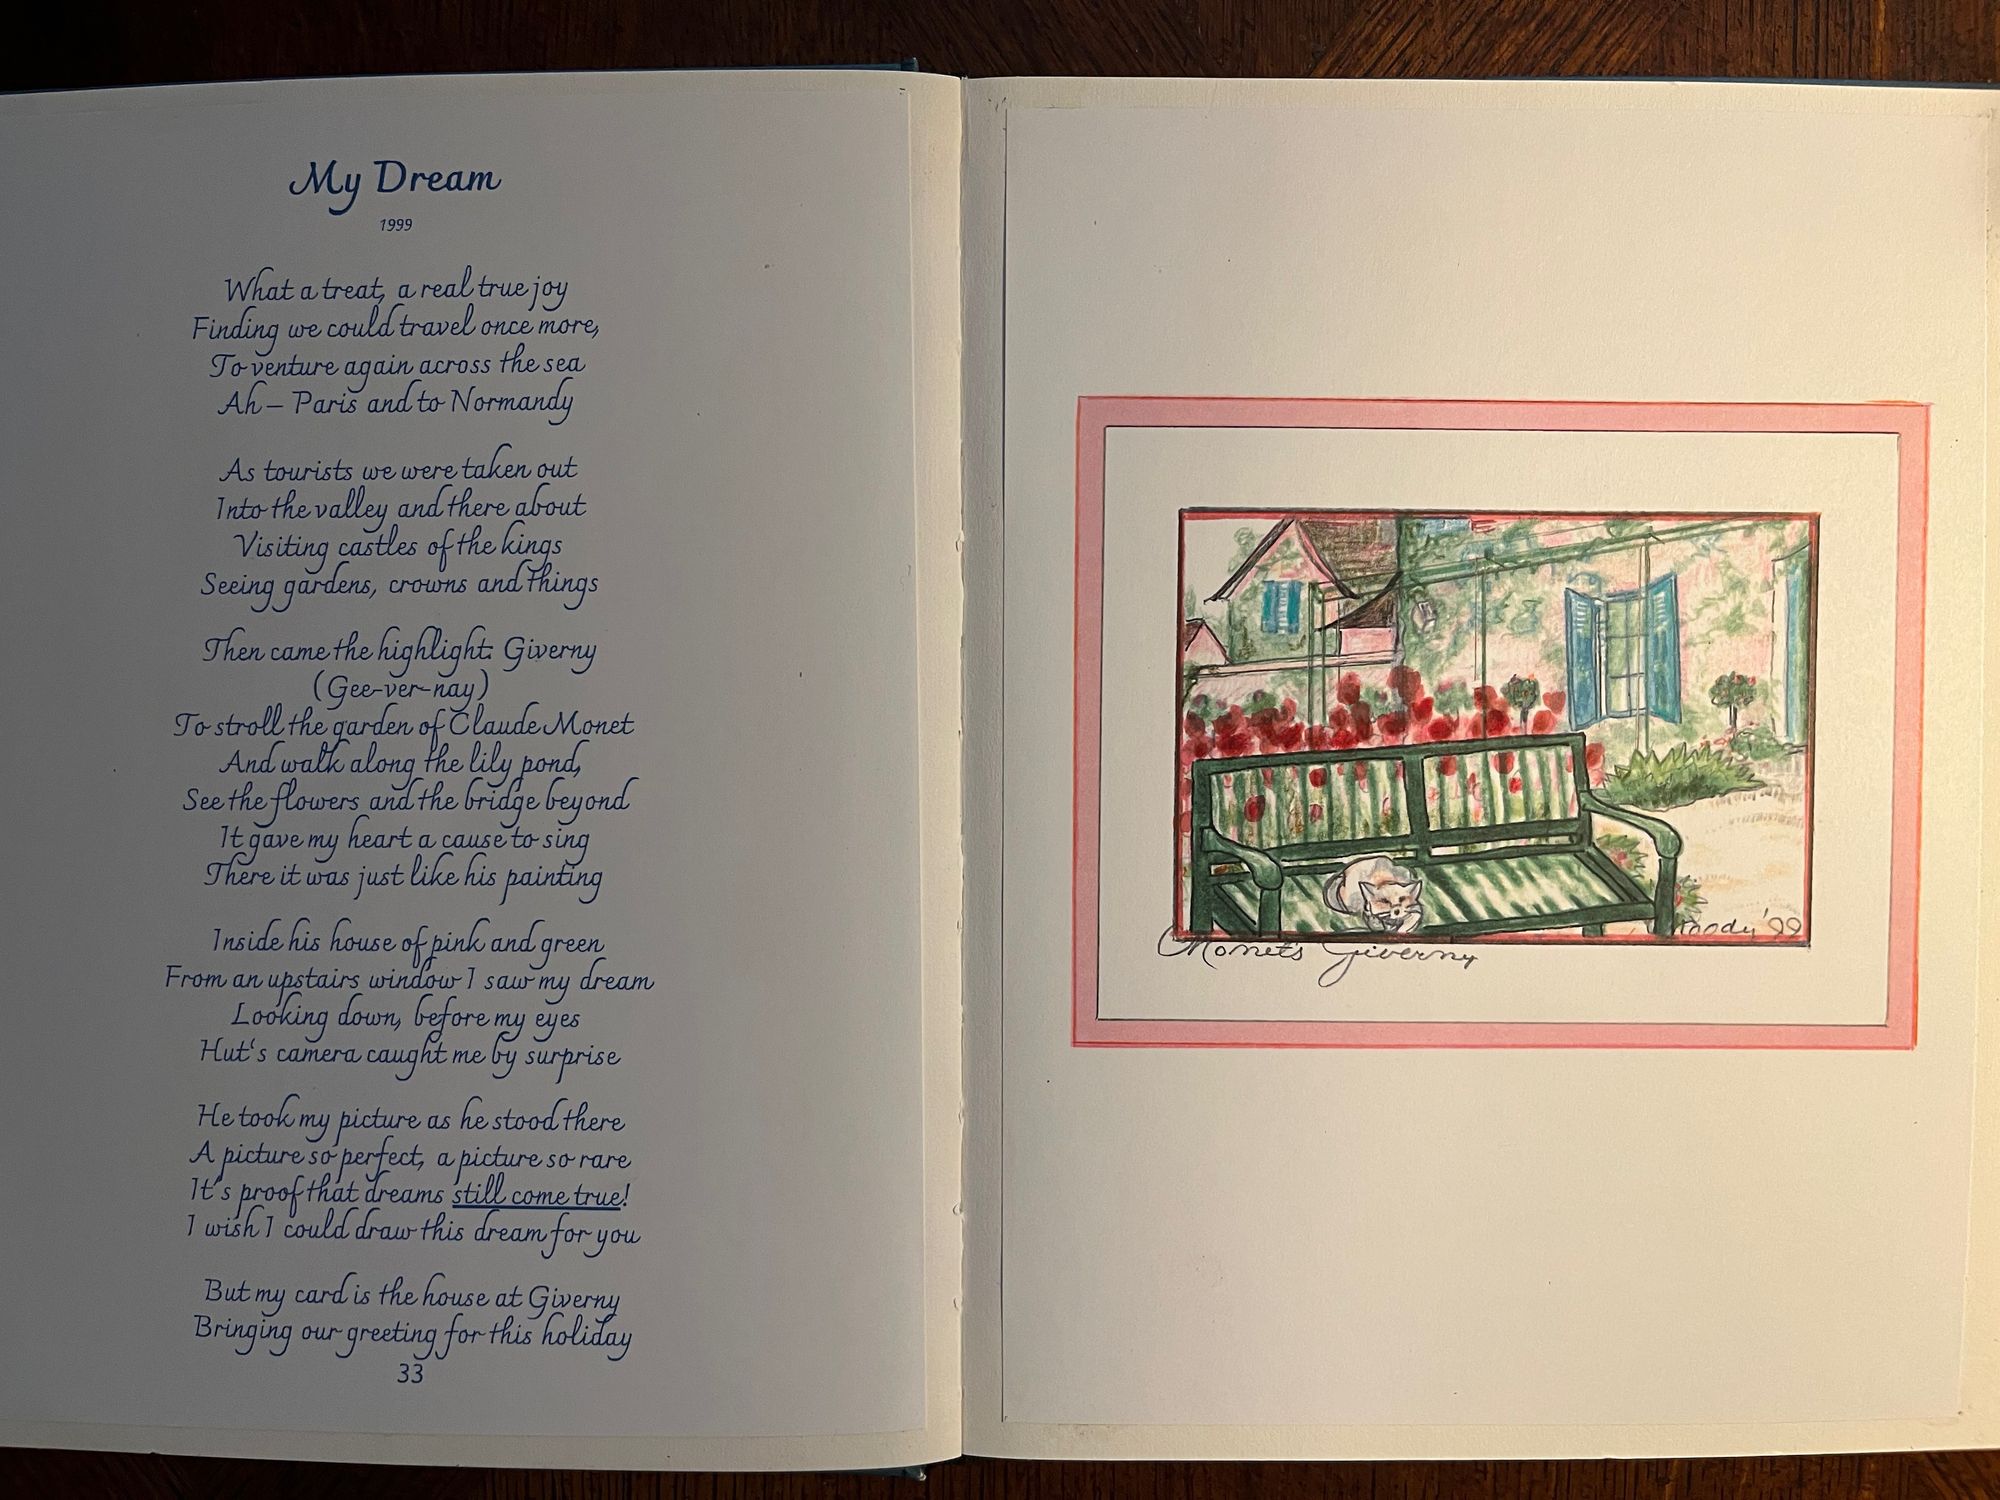 My Dream
1999
What a treat, a real true joy
Finding we could travel once more,
To venture again across the sea
Ah – Paris and to Normandy
As tourists we were taken out
Into the valley and there about
Visiting castles of the kings
Seeing gardens, crowns and things
Then came the highlight: Giverny
(Gee-ver-nay)
To stroll the garden of Claude Monet
And walk along the lily pond,
See the flowers and the bridge beyond
It gave my heart a cause to sing
There it was just like his painting
Inside his house of pink and green
From an upstairs window I saw my dream
Looking down, before my eyes
Hut's camera caught me by surprise
He took my picture as he stood there
A picture so perfect, a picture so rare
It's proof that dreams still come true!
I wish I could draw this dream for you
But my card is the house at Giverny
Bringing our greeting for this holiday
33
Monet's Giverny
'99